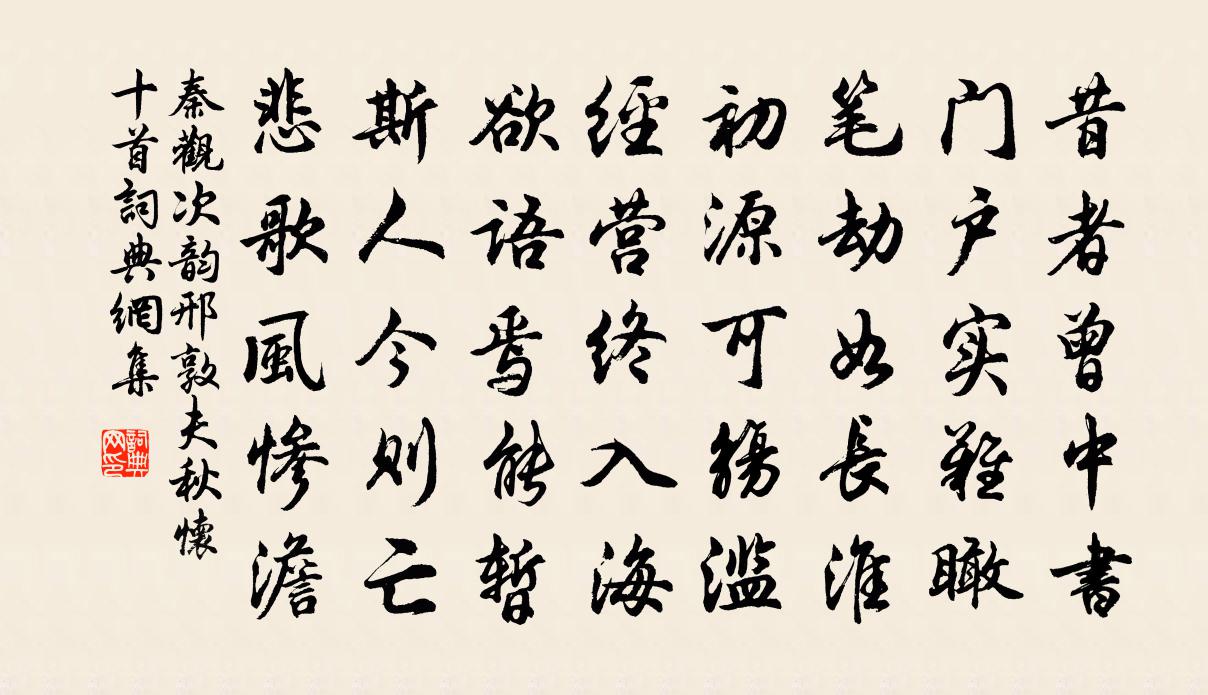 昔者曾中書
门户实難瞰
笔势如長淮
初源可觞滥
經营终入海
欲语焉能暫
斯人今则亡
悲歌風惨澹
秦觀次韵邢敦夫秋懷
十首詞典網集
詞典网印